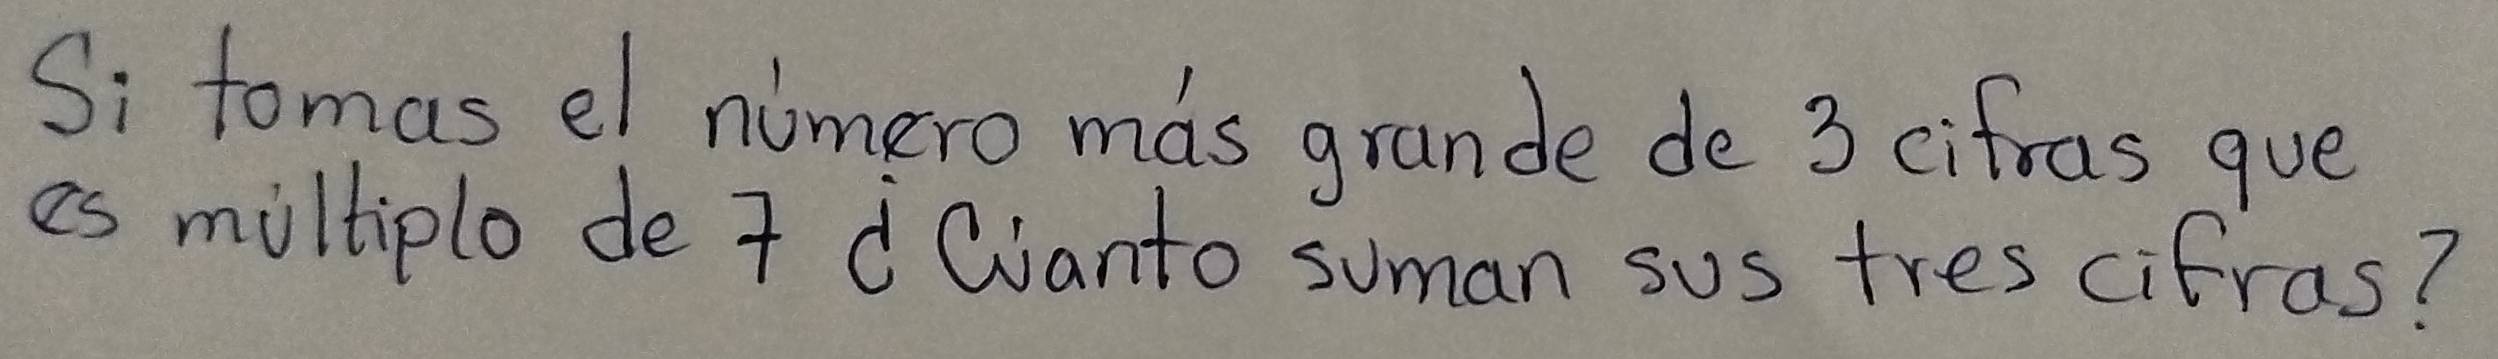 Si tomas el número más grande de 3 cifras que
es múltiplo de 7 ¿Cuánto suman sus tres cifras?